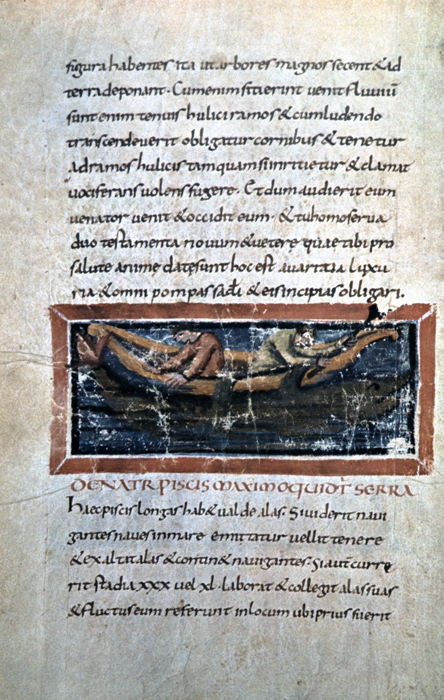 figura habentes ita ut arbores magnos secent & ad
terra deponant. Cum enim sitierint venit fluviu
sunt enim tenuis hulici ramos & cum ludendo
transcenderit obligatur cornibus & tenetur
ad ramos hulicis tamquam si & clamat
vociferans volens fugere. Et dum audierit eum
venator venit & occidit eum. & tu homo serva
duo testamenta novum & vetere quae tibi pro
salute anime date sunt hoc est avaritia luxu
ria & omni pompa & eis incipias obligari.
DE NATR PISCIS MAXIMO QUI DT SERRA
haec piscis longas hab& valde alas. Si viderit navi
gantes naves in mare emitatur vellit tenere
& exaltat alas & contin& navigantes. Si aut curre
rit stadia xxx vel xl. laborat & collegit alas suas
& fluctus eum referunt in locum ubi prius fuerit